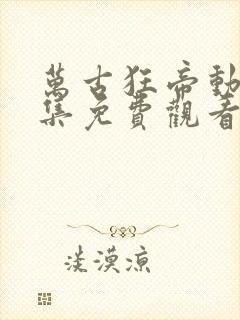 萬古狂帝動
集免費觀看
淡漠涼